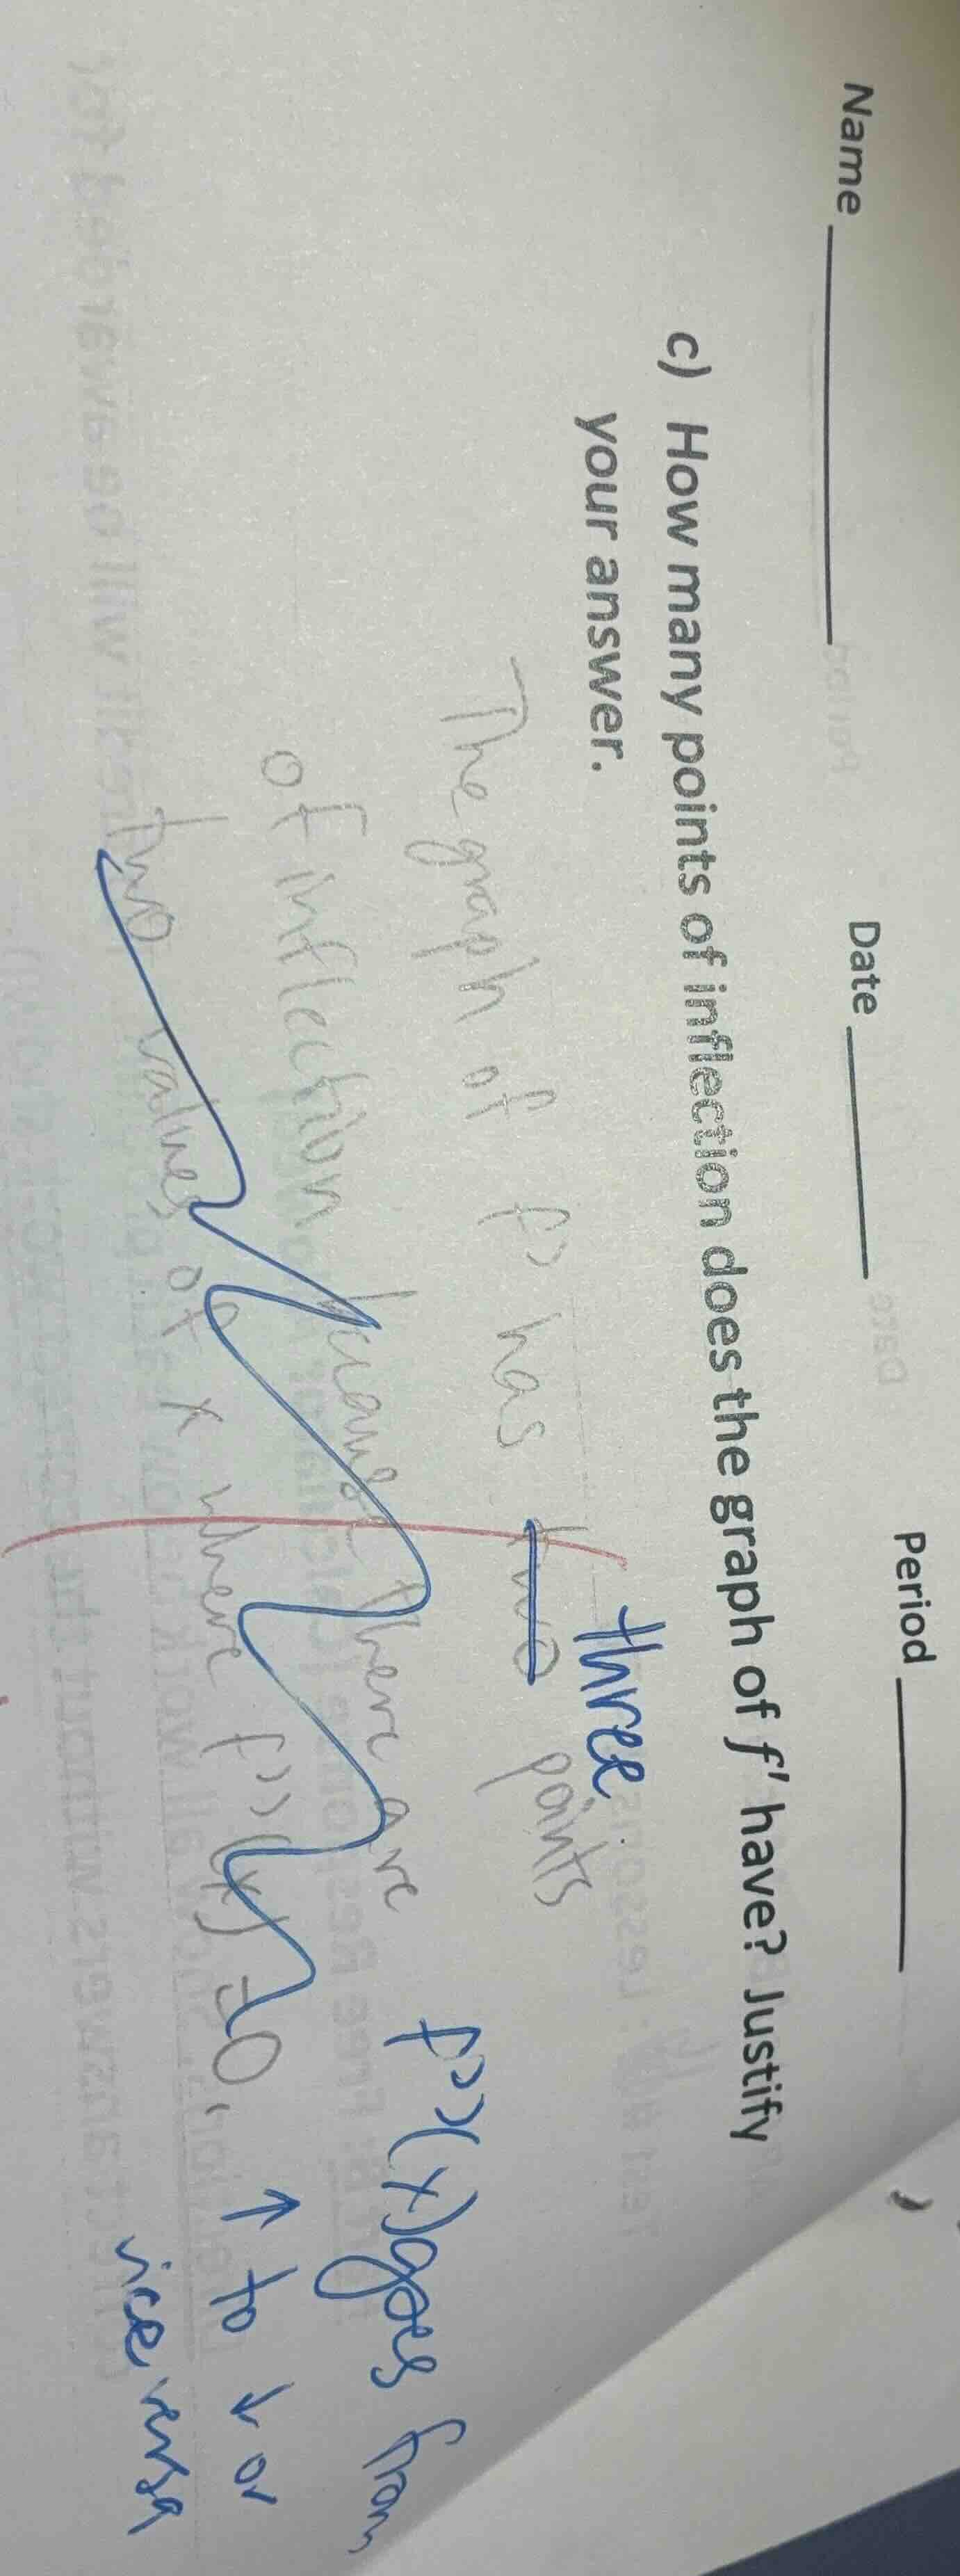 Name Date Period
c) How many points of inflection does the graph of f' have? Justify
your answer.
three
The graph of f' has two points
of inflection because there are
two values of x where f''(x) = 0.
f''(x) goes from
↑ to ↓ or
vice versa